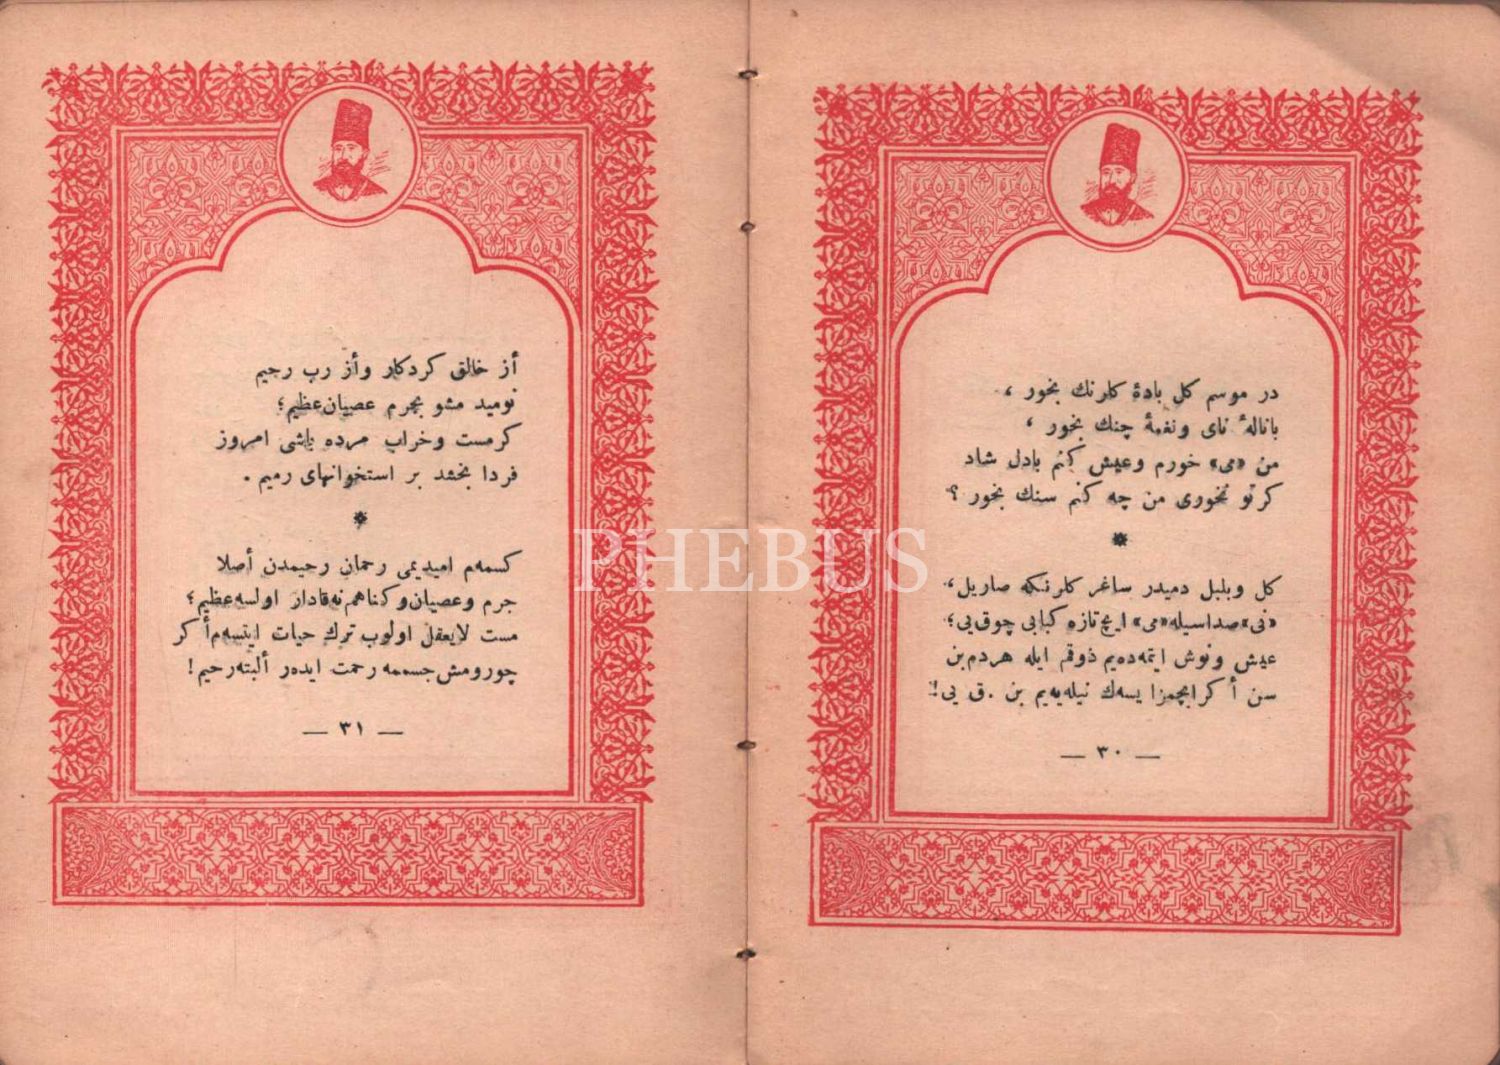 در موسم كل بادۀ كلرنك بخور ،
با نالۀ نای و نغمۀ چنك بخور ،
من «می» خورم وعیش كنم بادل شاد
كر تو نخوری من چه كنم سنك بخور ؟
كل وبلبل دمیدر ساغر كلرنكه صاریل ،
«نی» صداسیله «می» ایچ تازه كبابی چوق یی ؛
عیش ونوش ایتمه‌ده‌یم ذوقم ایله هردم بن
سن أكر ایچمزایسه‌ك نیله‌یه‌یم بن . ق یی !
— ٣٠ —
أز خالق كردكار وأز رب رحیم
نومید مشو بجرم عصیان عظیم ؛
كرمست وخراب مرده باشی امروز
فردا بخشد بر استخوانهای رمیم .
كسمه‌م امیدیمی رحمان رحیمدن أصلا
جرم وعصیان وكناهم نه‌قادار اولسه عظیم ؛
مست لایعقل اولوب ترك حیات ایتسه‌م أكر
چورومش جسممه رحمت ایده‌ر ألبته رحیم !
— ٣١ —
PHEBUS